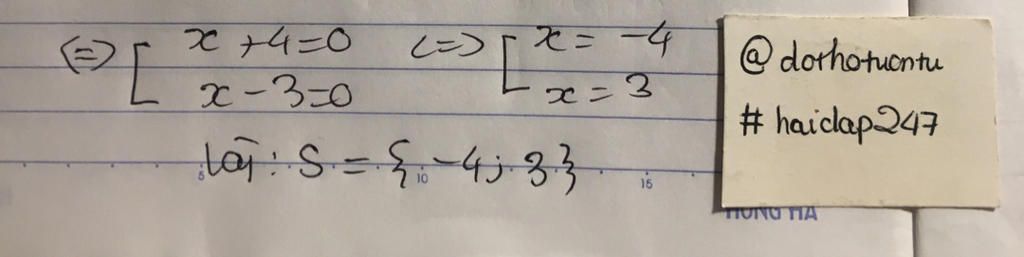 (=) [ x + 4 = 0 (=) [ x = -4
x - 3 = 0 x = 3
Vậy: S = { -4; 3 }
5 10 15
@dothotuontu
# haidap247
HONG HA